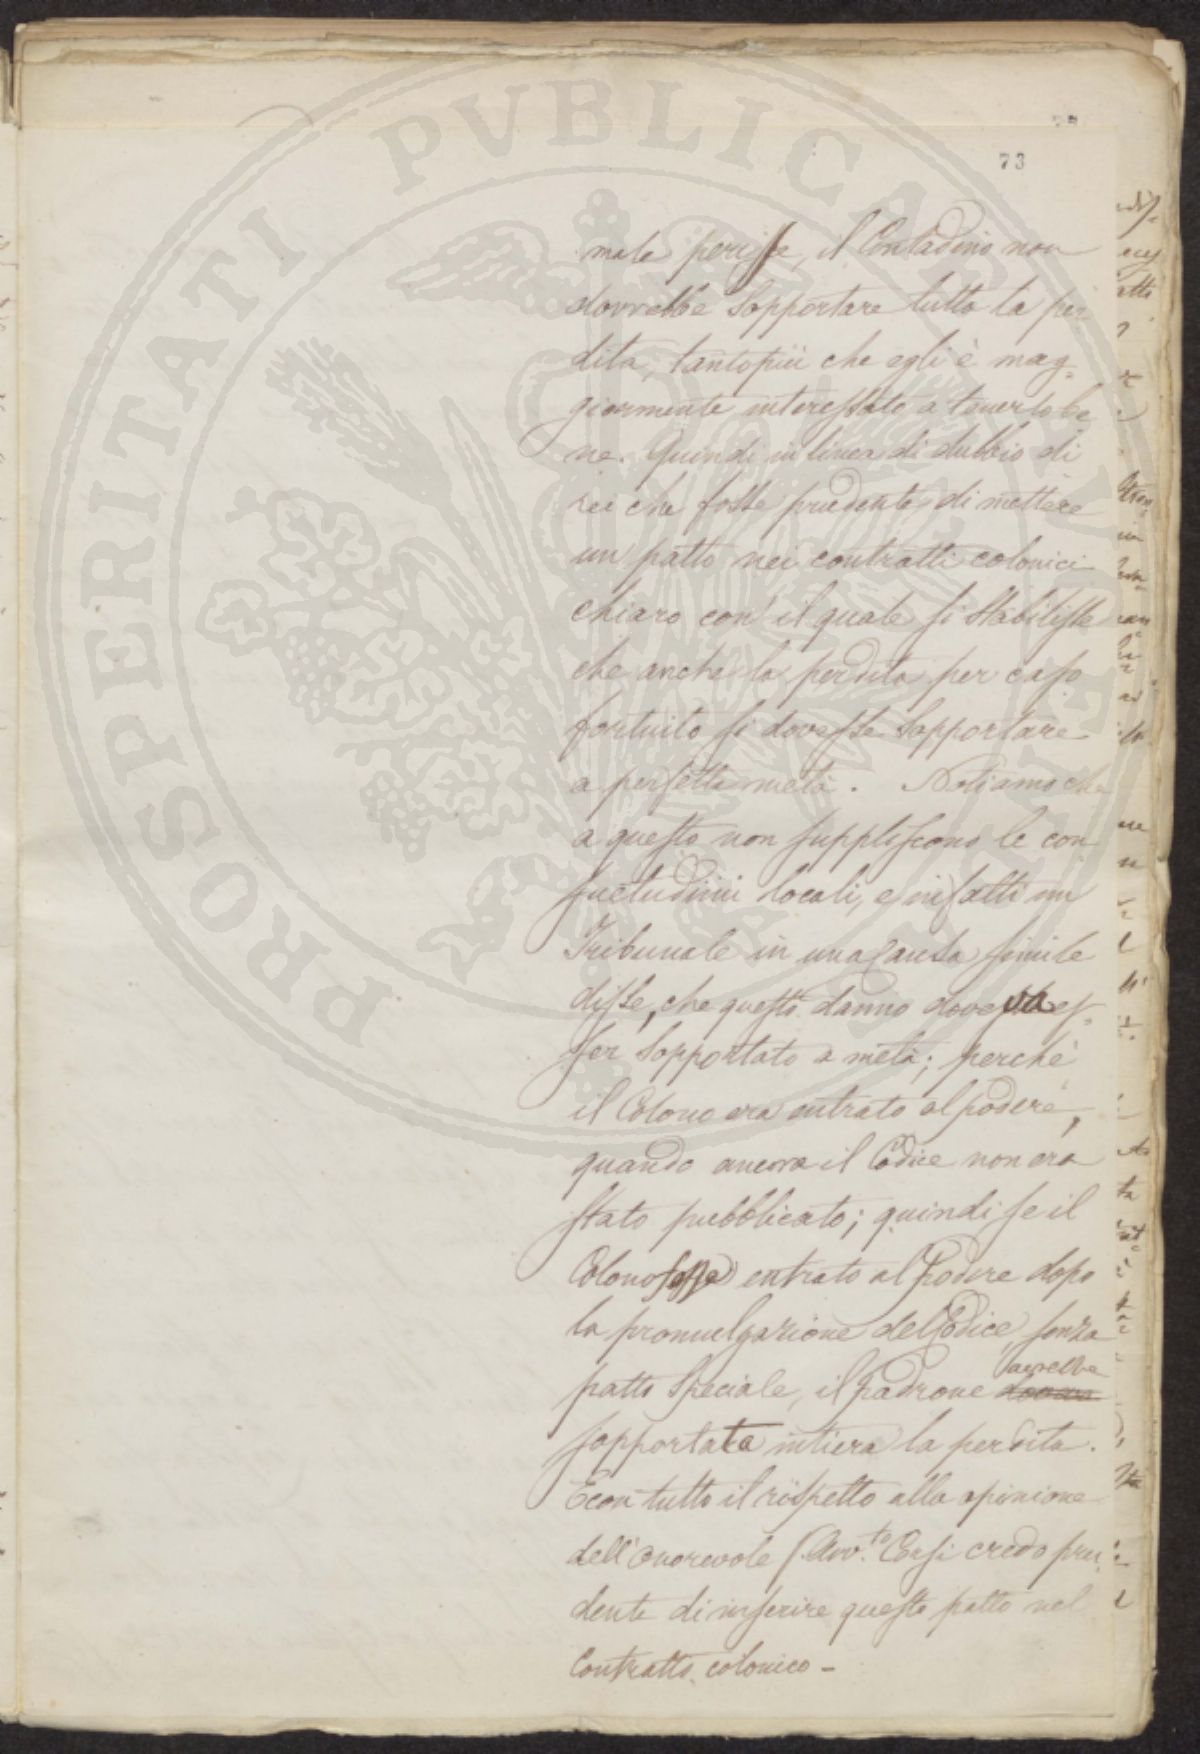 73
male perisse, il Contadino non
dovrebbe sopportare tutta la per
dita, tantopiù che egli è mag=
giormente interessato a tenerlo be
ne. Quindi in linea di dubbio di
rei che fosse prudente di mettere
un patto nei contratti colonici
chiaro con il quale si stabilisse
che anche la perdita per caso
fortuito si dovesse sopportare
a perfetta metà. Notiamo che
a questo non suppliscono le con
suetudini locali, e infatti un
Tribunale in una causa simile
disse, che questo danno doveva es-
ser sopportato a metà; perchè
il Colono era entrato al podere,
quando ancora il Codice non era
stato pubblicato; quindi se il
Colono fosse entrato al Podere dopo
la promulgazione del Codice, senza
patto speciale, il padrone avrebbe
sopportata intiera la perdita.
E con tutto il rispetto alla opinione
dell'onorevole S. Avv.to Corsi credo pru=
dente di inserire questo patto nel
Contratto colonico -
PROSPERITATI PVBLICAE